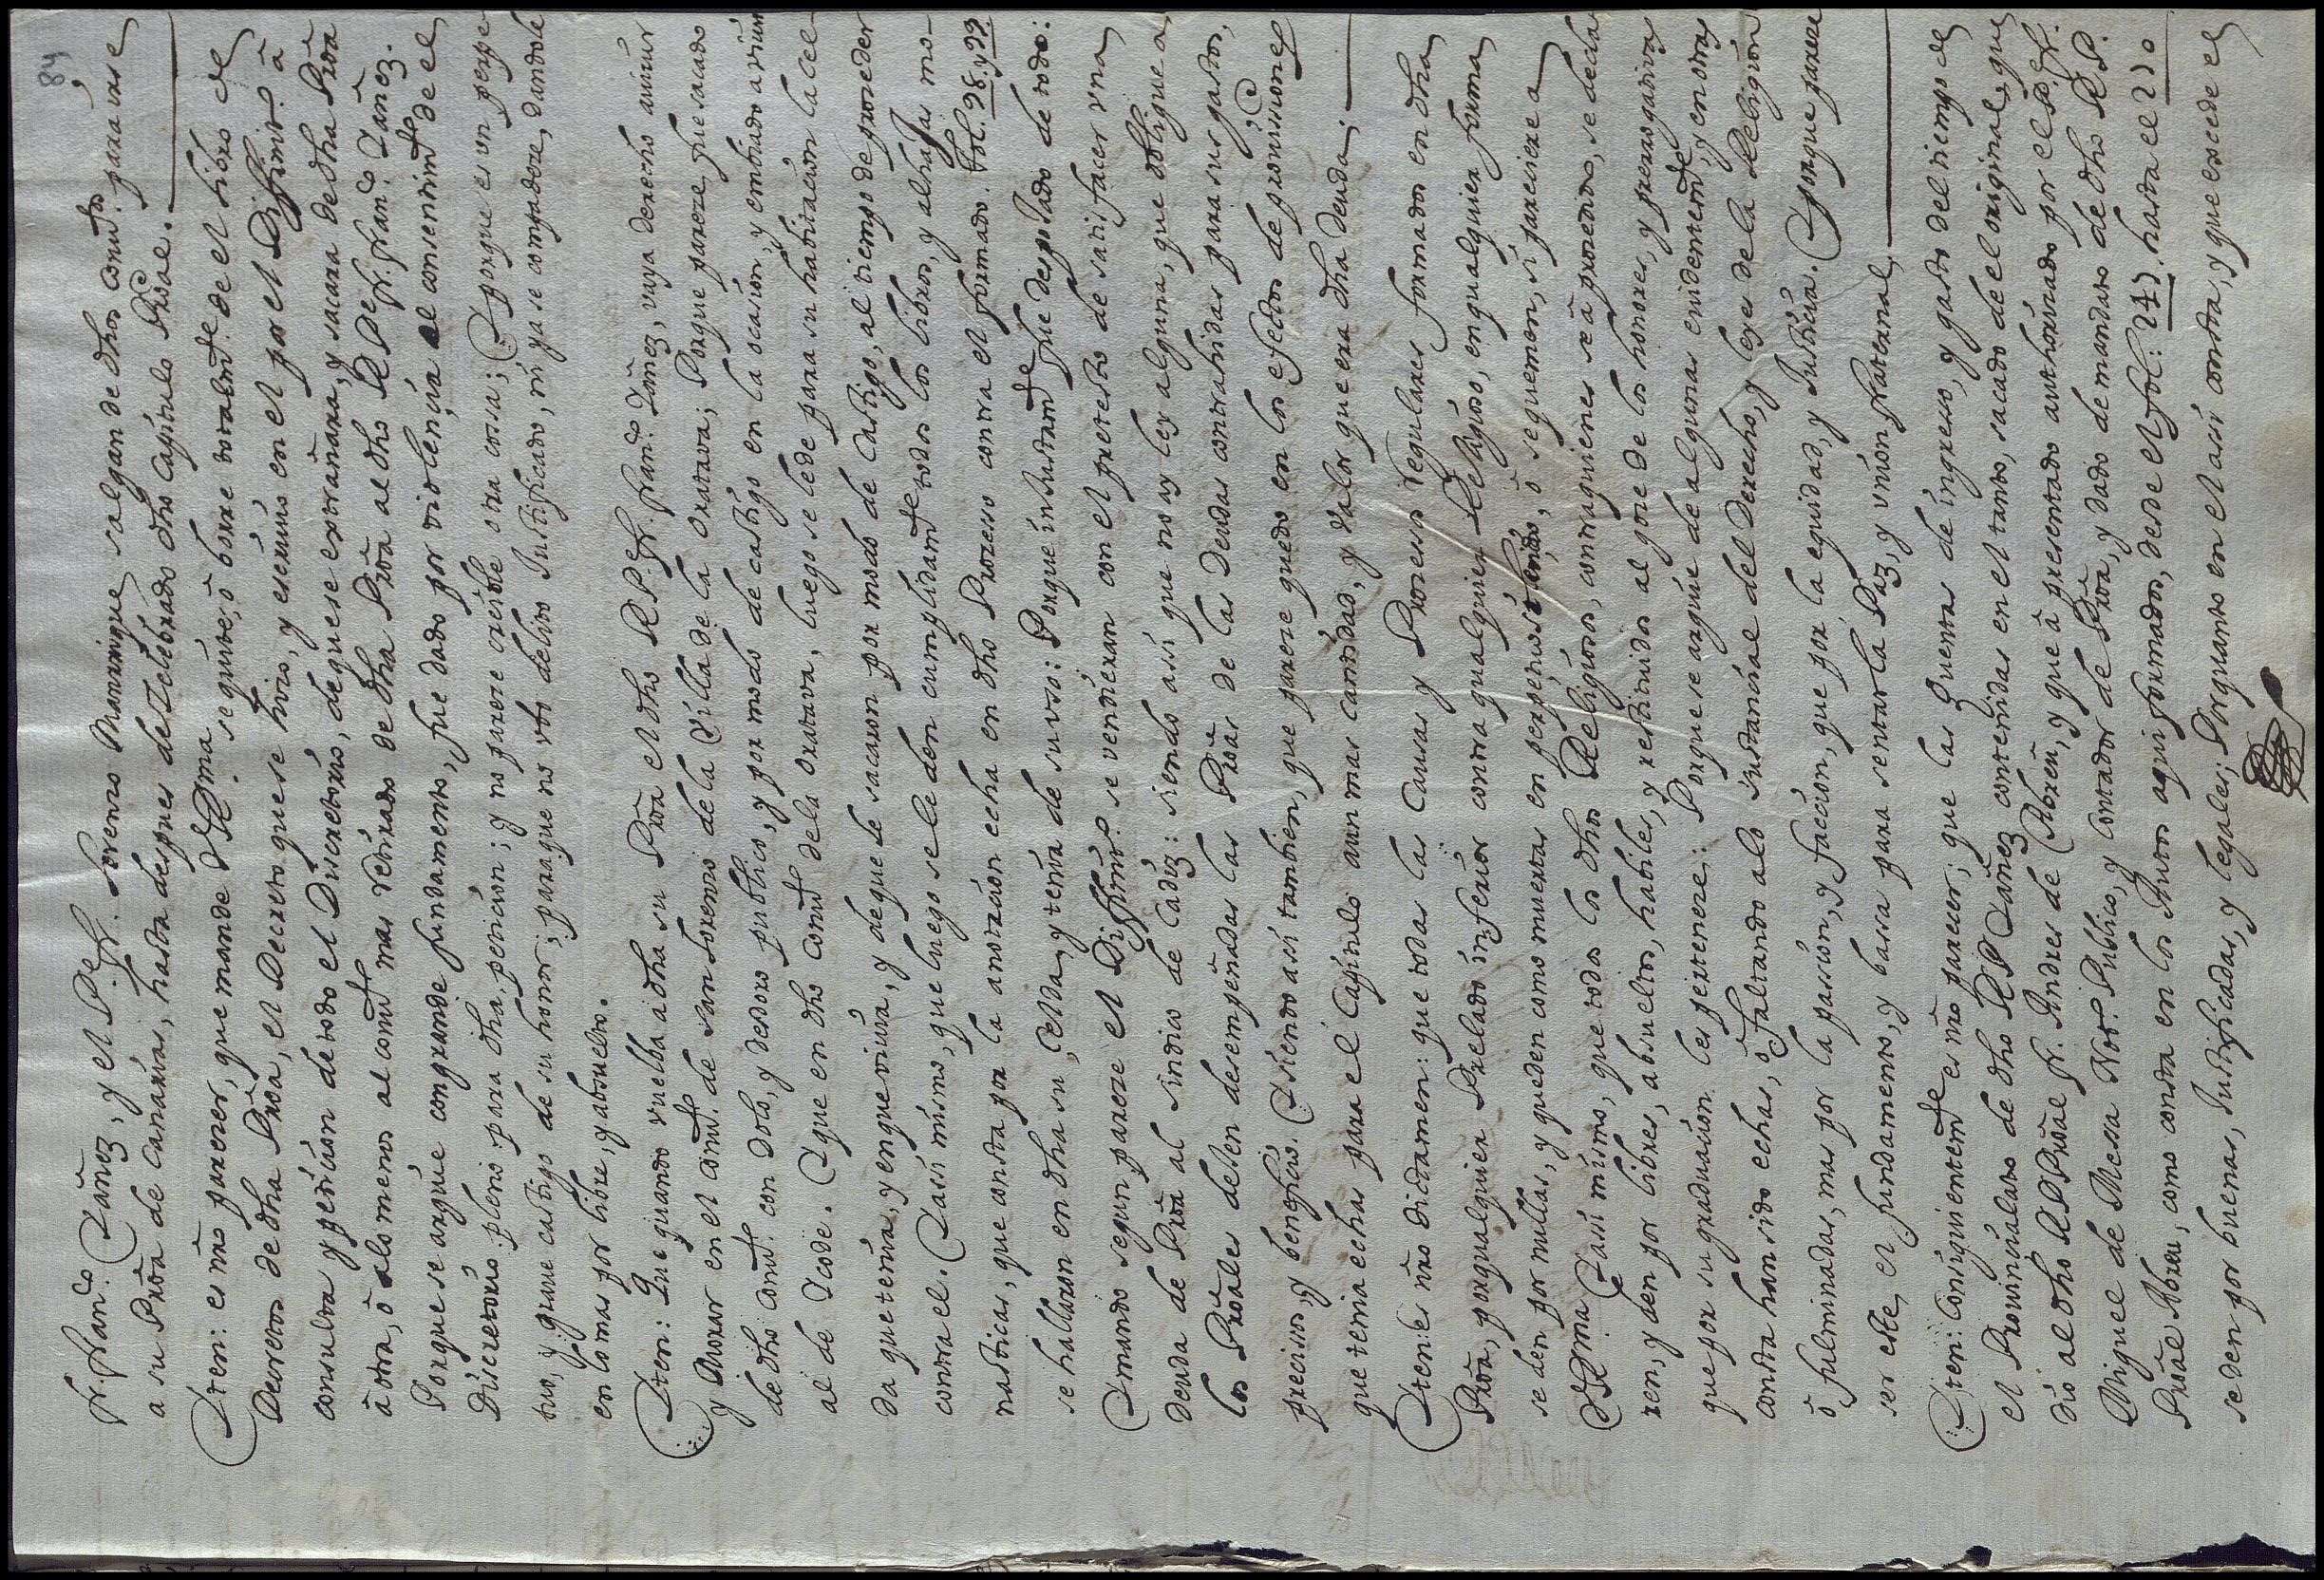 84
fr. Fran.co Yañez, y el P.e fr. Lorenzo Manrrique salgan de dhos conv.tos para irse
a su Prõa de Canarias, hasta despues de zelebrado dho Capitulo Prõal.
Iten: es nr̃o parezer, que mande V. R.ma se quite, ô borre totalm.te de el Libro de
Decretos de dha Prõa, el Decreto que se hizo, y escriuio en el por el Diffinit.o â
consulta y peticion de todo el Discretorio, de que se extrañara, y sacara de dha Prõa
â otra, ô alo menos al conv.to mas retirado de dha Prõa al dho R P.e fr. Fran.co Yañez.
Porque se arguie con grande fundamento, fue dado por violencia el consentim.to de el
Discretorio pleno para dha peticion; y no parece creible otra cossa; Y porque es un perpe
tuo, y graue castigo de su honor; para que no vbo delito Iustificado, ni ya se compadeze, dandole
en lo mas por libre, y absuelto.
Iten: Que quando vuelba a dha su Prõa el dho R.P. fr. Fran.co Yañez, vaya derecho auiuir
y Morar en el conv.to de san Lorenzo de la Villa de la Oratava; Porque pareze fue sacado
de dho conv.to con dolo, y desdoro publico, y por modo de castigo en la ocasion, y embiado a viuir
al de Icode. Y que en dho conv.to de la Oratava, luego se le de para su habitacion la cel
da que tenia, y en que viuia, y de que le sacaron por modo de castigo, al tiempo de proceder
contra el. Y assi mismo, que luego se le den cumplidam.te todos los libros, y alhajas mo-
nasticas, que consta por la anotacion echa en dho Prozesso contra el formado. fol. 98. y 99.
se hallaron en dha su celda, y tenia de su vso: Porque injustam.te fue despojado de todo:
Y mando segun pareze el Diffinit.o se vendieran con el pretexto de satisfacer vna
deuda de Prõa al sindico de Cadiz: siendo assi que no ay ley alguna, que obligue a
los Prõales deben desempeñadas las Prõas de las Deudas contrahidas para sus gastos,
precisos, y beneficio. Y siendo assi tambien, que pareze quedo en los efectos de prouisiones
que tenia echas para el Capitulo aun mas cantidad, y valor que era dha deuda.
Iten: es nr̃o dictamen: que todas las Causas y Prozessos regulares formados en dha
Prõa, por qualquier Prelado inferior contra qualquier Religioso, en qualquier forma
se den por nullas, y queden como muertas en perpetuo silencio, ô se quemen, si pareciere a
V. R.ma Y assi mismo, que todos los dhos Religiosos, contra quienes se â procedido, se decla
ren, y den por libres, absueltos, habiles, y restituidos al goze de los honores, y prerrogativas
que por su graduacion les pertenece: Porque se arguie de algunas euidentem.te, y en otras
consta han sido echas, ô faltando alo sustancial del Derecho, y leyes de la Religion
ô fulminadas, mas por la passion, y faccion, que por la equidad, y Iusticia. Y porque pareze
ser este el fundamento, y bassa para sentar la Paz, y vnion fraternal.
Iten: Consiguientem.te es nr̃o parecer; que las Quentas de ingresso, y gasto del tiempo de
el Prouincialato de dho R P Yañez contenidas en el tanto, sacado de el original, que
dio al dho R P Prõal fr. Andres de Abreu, y que â presentado authorizado por el P.e fr.
Miguel de Messa Not. Publico, y Contador de Prõa, y dado de mandato de dho R P.
Prõal Abreu, como consta en los Autos aqui formados, desde el fol: 247. hasta el 250
se den por buenas, Iustificadas, y legales; Por quanto en el assi consta, y que excede el